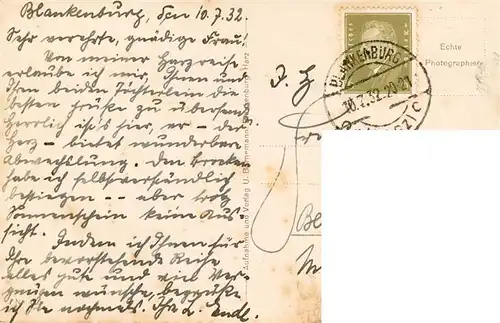 Blankenburg, den 10.7.32.
Sehr verehrte, gnädige Frau!
Von meiner Harzreise
erlaube ich mir, Ihnen und
Ihren beiden Töchterlein die
besten Grüße zu übersenden.
Herrlich ist's hier, er – der
Harz – bietet wunderbare
Abwechslung. Den Brocken
habe ich selbstverständlich
bestiegen –– aber trotz
Sonnenschein keine Aus-
sicht. Indem ich Ihnen für
Ihre bevorstehende Reise
alles gute und viel Ver-
gnügen wünsche, begrüße
ich Sie nochmals. Ihr L. Endl.
Aufnahme und Verlag U. Bornemann, Blankenburg Harz
P. H.
BLANKENBURG
10.7.32.20-21
(HARZ) C
Echte
Photographie